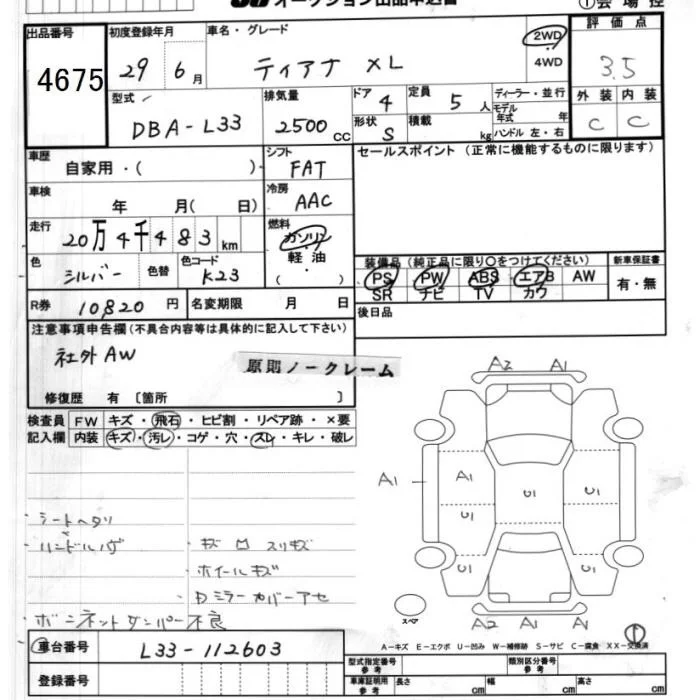 オークション出品申込書
①会場控
出品番号
4675
初度登録年月
29 6月
車名・グレード
ティアナ XL
2WD
4WD
評価点
3.5
型式
DBA-L33
排気量
2500 cc
ドア 4
形状 S
定員 5人
積載 kg
ディーラー・並行
モデル年式 年
ハンドル 左・右
外装 内装
C C
車歴
自家用・( )
シフト
FAT
セールスポイント (正常に機能するものに限ります)
車検
年 月( 日)
冷房
AAC
走行
20万4千483km
燃料
ガソリン
軽油
( )
色
シルバー
色替
色コード
K23
装備品 (純正品に限り○をつけてください)
PS PW ABS エアB AW
SR ナビ TV カワ
新車保証書
有・無
R券 10820円
名変期限 月 日
後日品
注意事項申告欄 (不具合内容等は具体的に記入して下さい)
社外AW
原則ノークレーム
修復歴 有 〔箇所 〕
検査員
記入欄
FW キズ・飛石・ヒビ割・リペア跡・×要
内装 キズ・汚レ・コゲ・穴・スレ・キレ・破レ
・シートヘタリ
・ハンドルハゲ
・キズ 凹 スリキズ
・ホイールキズ
・Dミラーカバーアセ
・ボンネットダンパー不良
A2 A1
A1
A1 U1 U1
U1
U1 U1
A2 A1 A1
スペア
①
A-キズ E-エクボ U-凹み W-補修跡 S-サビ C-腐食 XX-交換済
車台番号
L33-112603
登録番号
型式指定番号
類別区分番号
車庫証明用参考
長さ cm
幅 cm
高さ cm